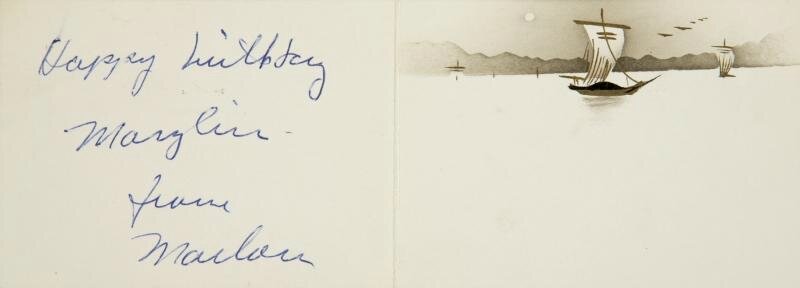 Happy birthday
Marylin -
from
Marlon